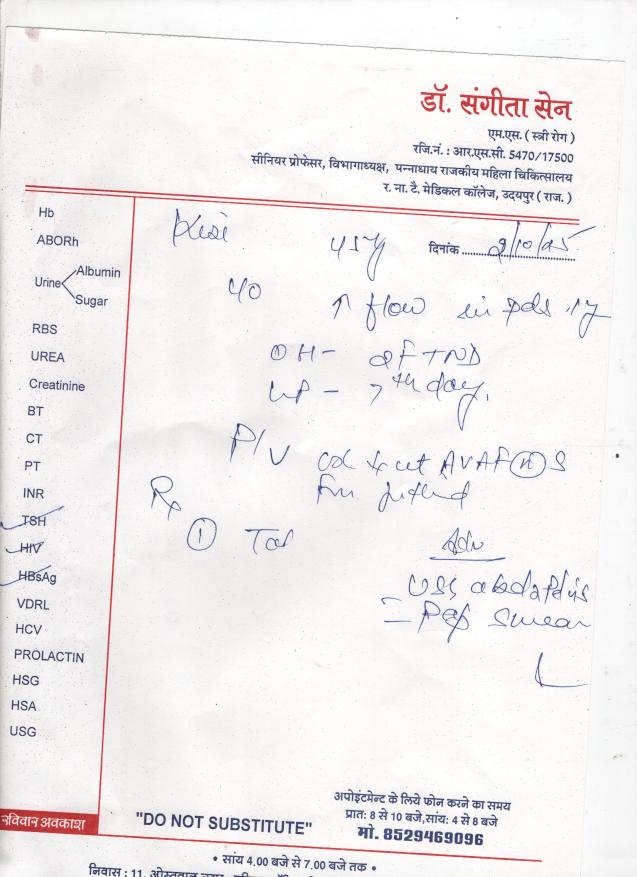 डॉ. संगीता सेन
एम.एस. ( स्त्री रोग )
रजि.नं. : आर.एस.सी. 5470/17500
सीनियर प्रोफेसर, विभागाध्यक्ष, पन्नाधाय राजकीय महिला चिकित्सालय
र. ना. टै. मेडिकल कॉलेज, उदयपुर ( राज. )
Hb
ABORh
Urine Albumin
Sugar
RBS
UREA
Creatinine
BT
CT
PT
INR
TSH
HIV
HBsAg
VDRL
HCV
PROLACTIN
HSG
HSA
USG
रविवार अवकाश
45y दिनांक 9/10/25
↑ flow in pds 1y
OH- 2FTND
LMP - 7th day.
P/V AVAF (N) S
Rx
① Tab
Adv
USG
- Pap smear
अपोइंटमेन्ट के लिये फोन करने का समय
प्रात: 8 से 10 बजे,सांय: 4 से 8 बजे
"DO NOT SUBSTITUTE" मो. 8529469096
• सांय 4.00 बजे से 7.00 बजे तक •
निवास : 11,